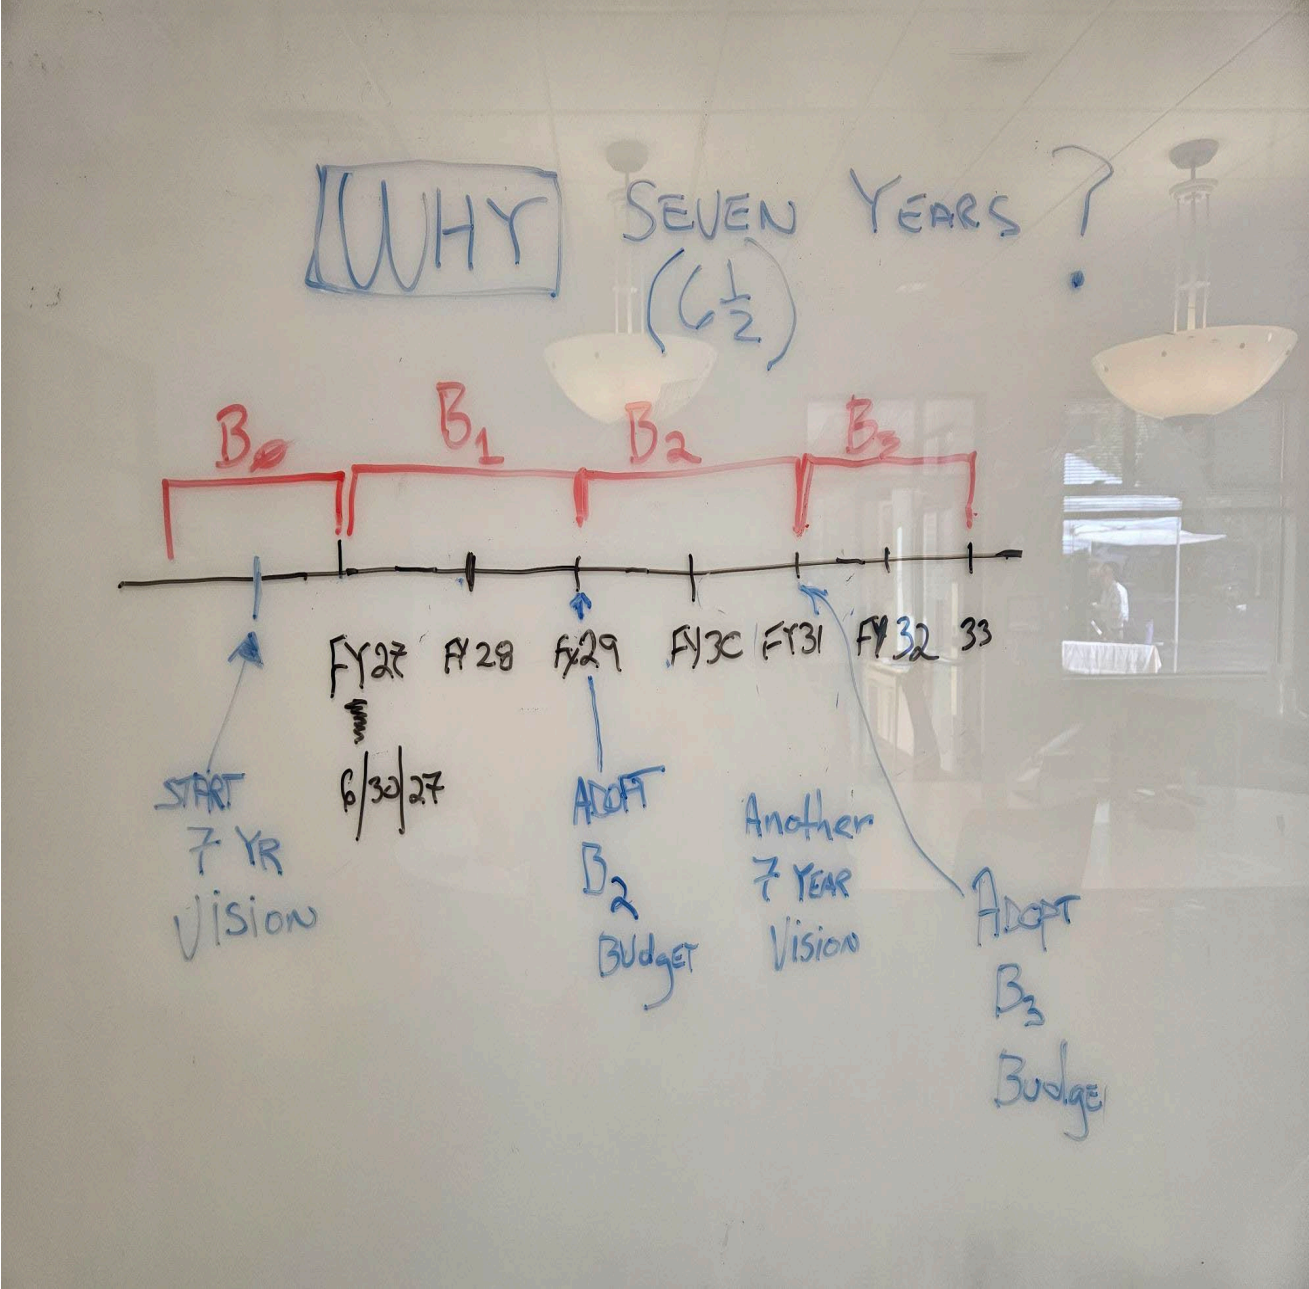 WHY SEVEN YEARS ?
(6 1/2)
B0 B1 B2 B3
FY27 FY28 FY29 FY30 FY31 FY32 33
6/30/27
START
7 YR
Vision
ADOPT
B2
BUdgET
Another
7 YEAR
Vision
ADOPT
B3
Budge